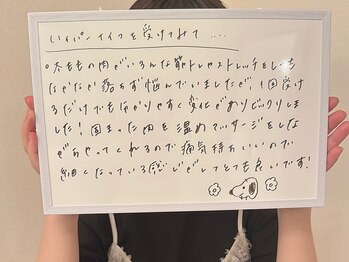 ハイパーナイフを受けてみて....
○太ももの肉がいろんな筋トレやストレッチをしても
なかなか落ちず悩んでいましたが、1回受け
るだけでも分かりやすく変化がありビックリしま
した!固まった肉を温めてマッサージをしな
がらやってくれるので病気持ちいいので
細くなっている感じがしてとても良いです!